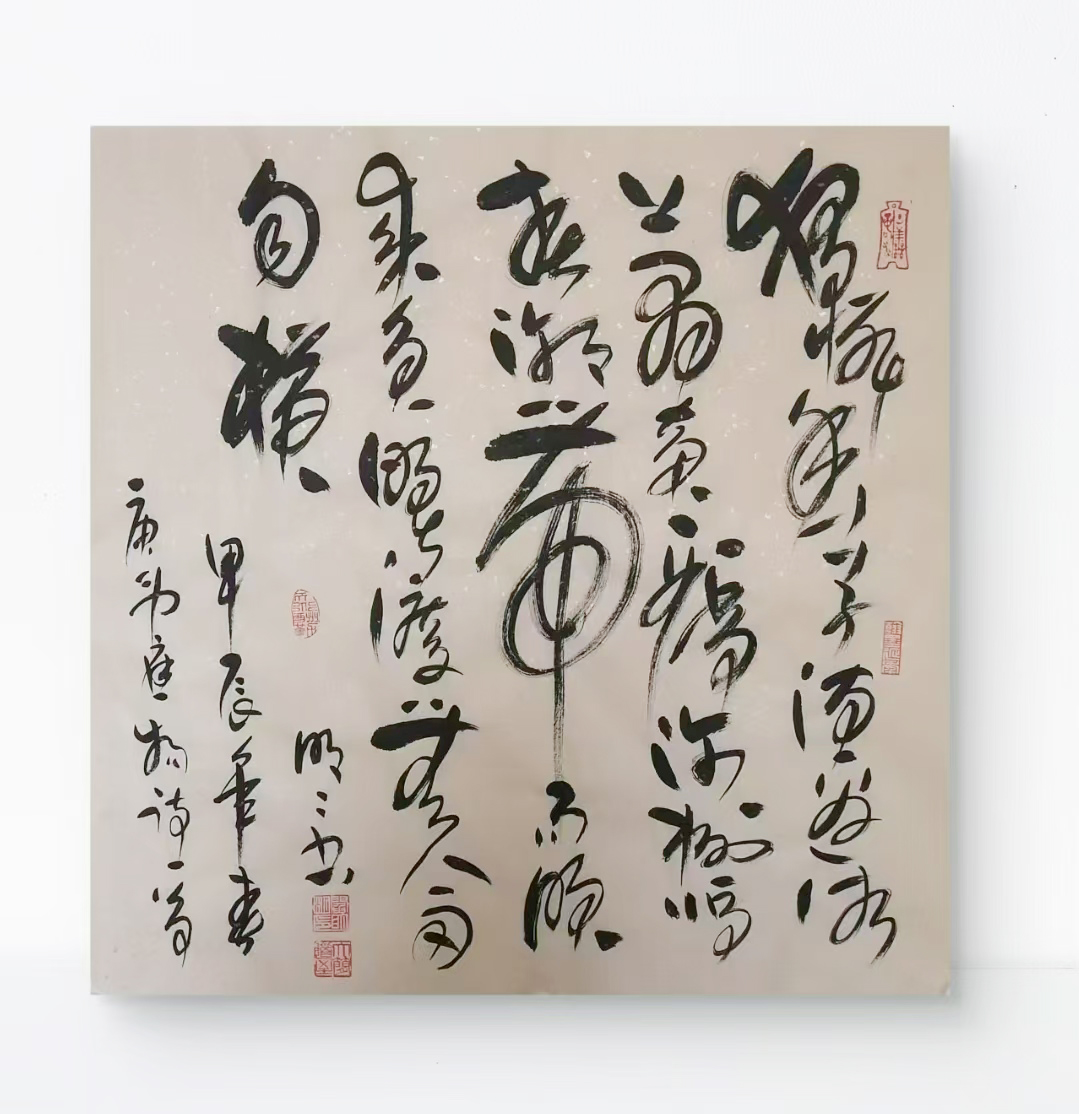 獨憐幽草澗邊
上有黃鸝深樹鳴
春潮帶雨晚
來急野渡無人舟
自橫
唐韋應物詩一首
甲辰年春
明三书